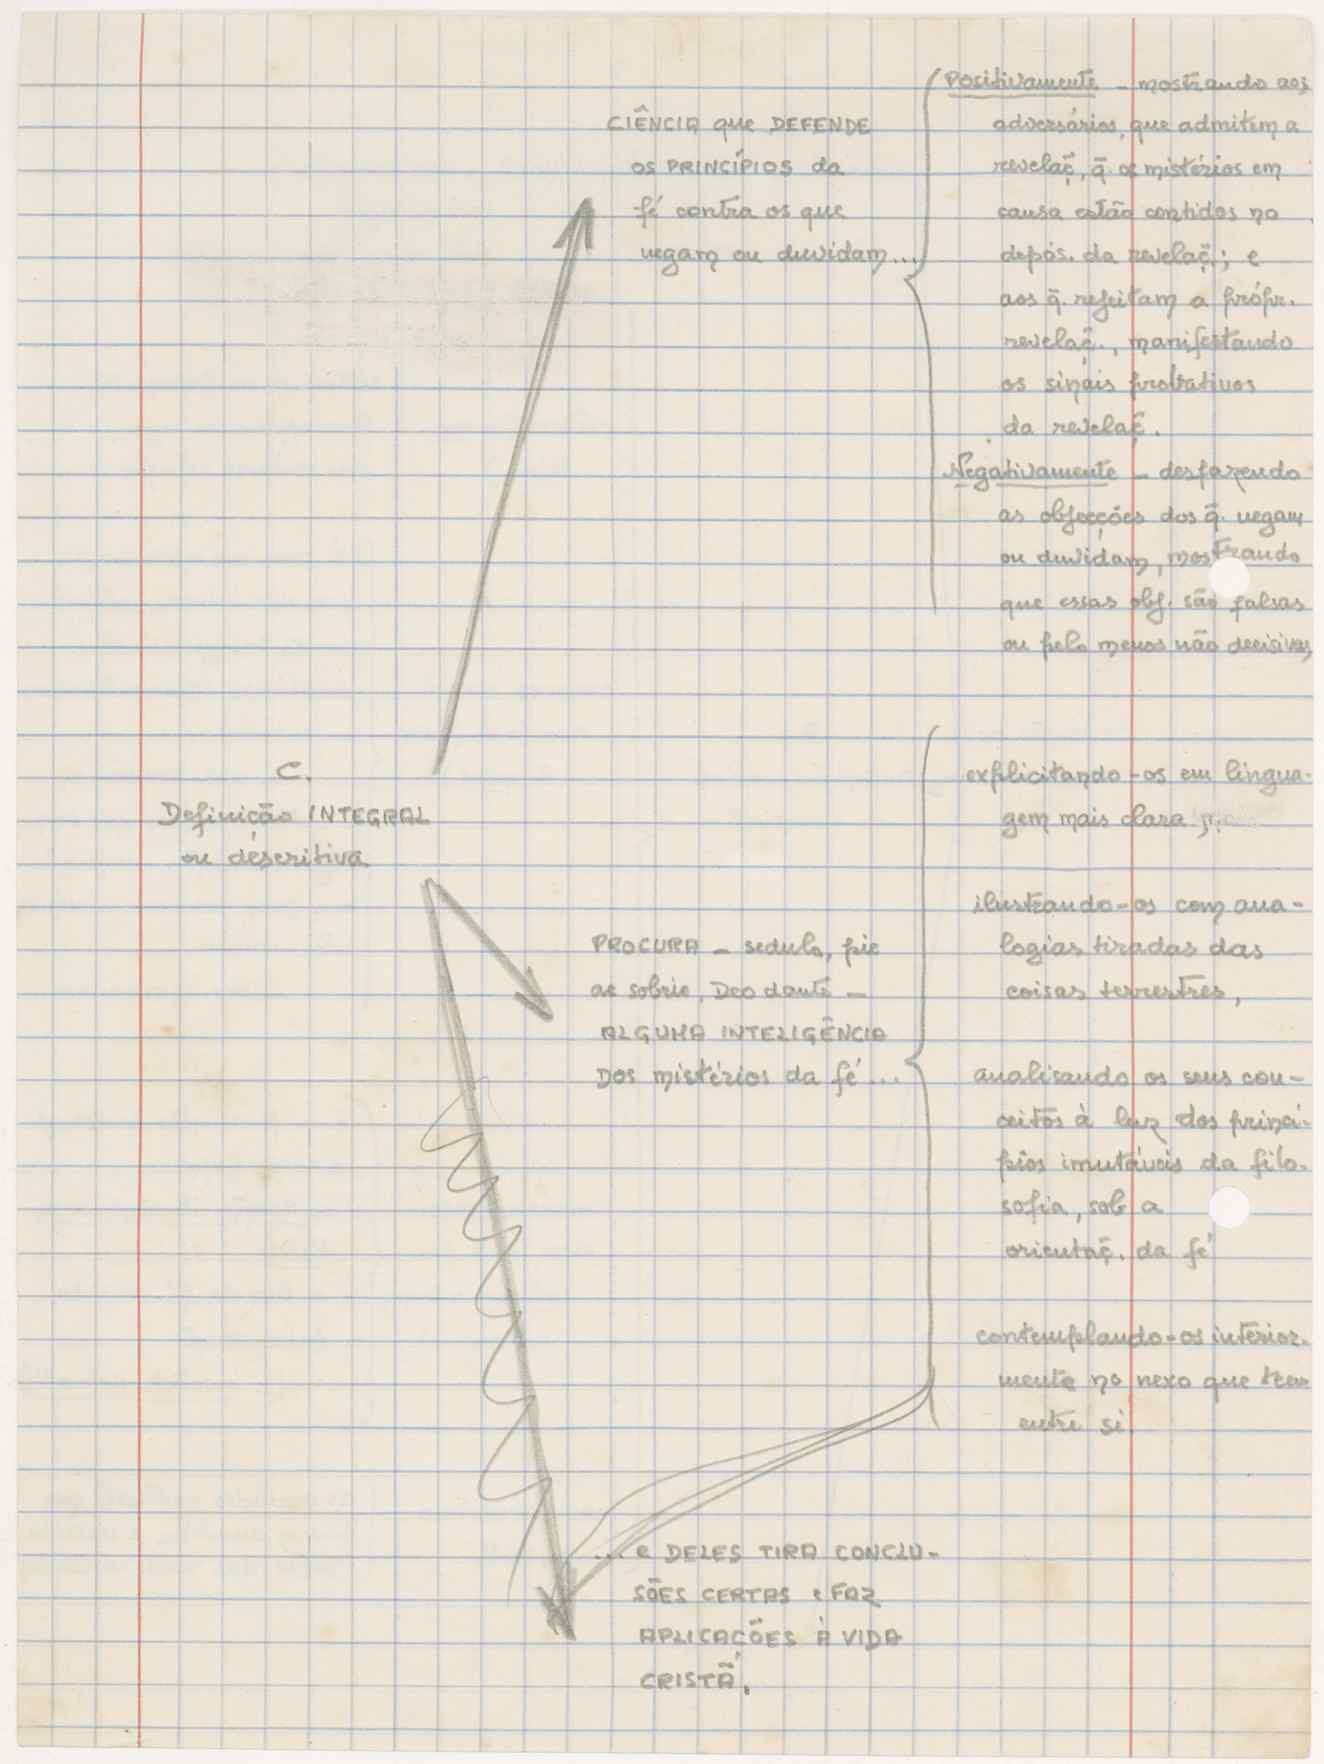 CIÊNCIA que DEFENDE
OS PRINCÍPIOS da
fé contra os que
negam ou duvidam...
Positivamente - mostrando aos
adversários, que admitem a
revelaç̃, q̃. os mistérios em
causa estão contidos no
depós. da revelaç̃.; e
aos q̃. rejeitam a própr.
revelaç̃., manifestando
os sinais probativos
da revelaç̃.
Negativamente - desfazendo
as objecções dos q̃. negam
ou duvidam, mostrando
que essas obj. são falsas
ou pelo menos não decisivas
C.
Definição INTEGRAL
ou descritiva
PROCURA - sedulo, pie
ac sobrie, Deo dante -
ALGUMA INTELIGÊNCIA
DOS mistérios da fé...
explicitando-os em lingua-
gem mais clara
ilustrando-os com ana-
logias tiradas das
coisas terrestres,
analisando os seus con-
ceitos à luz dos princí-
pios imutáveis da filo-
sofia, sob a
orientaç̃. da fé
contemplando-os interior-
mente no nexo que tem
entre si
... e DELES TIRA CONCLU-
SÕES CERTAS e FAZ
APLICAÇÕES À VIDA
CRISTÃ.